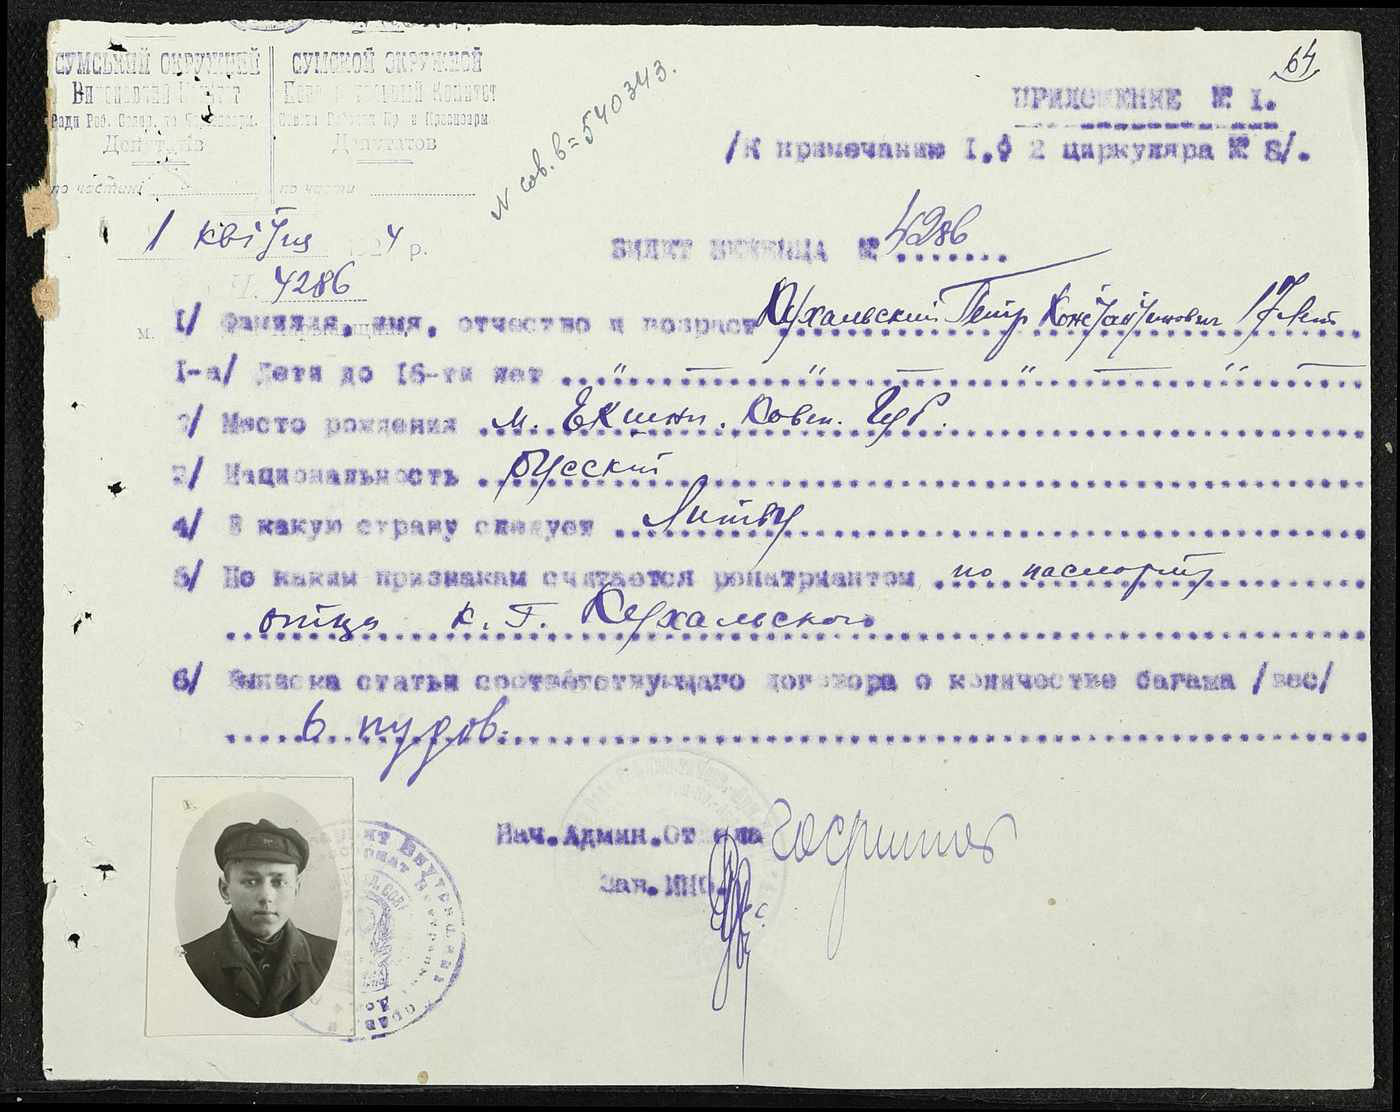 64
СУМСЬКИЙ ОКРУЖНИЙ
Виконавчий Комітет
Ради Роб. Селян. та Червоноарм.
Депутатів
по частині
СУМСКОЙ ОКРУЖНОЙ
Исполнительный Комитет
Совета Рабочих Кр. и Красноарм
Депутатов
по части
N сов. в=540343.
ПРИЛОЖЕНИЕ № I.
/К примечанию I.§ 2 циркуляра № 8/.
1 квітня 1924 р.
Ч. 4286
м.
БИЛЕТ БЕЖЕНЦА № 4286
I/ Фамилия, имя, отчество и возраст Кухальский Петр Константинович 17 лет
I-а/ Дети до 16-ти лет
2/ Место рождения м. Екшни. Ковен. Губ.
2/ Национальность русский
4/ В какую страну следует Литву
5/ По каким признакам считается репатриантом по паспорту
отца К. Г. Кухальского
6/ Выписка статьи соответствующаго договора о количестве багажа /вес/
6 пудов.
Нач.Админ.Отдела
Зав.ИНО.